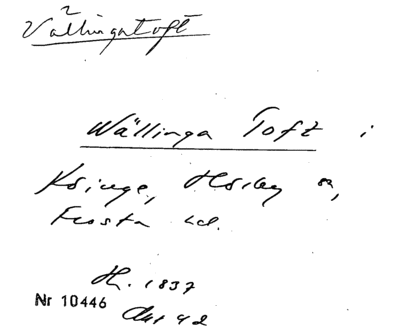 Vällingatoft
Wällinga Toft i
Hörby sn,
Frosta hd.
H. 1837
Nr 10446